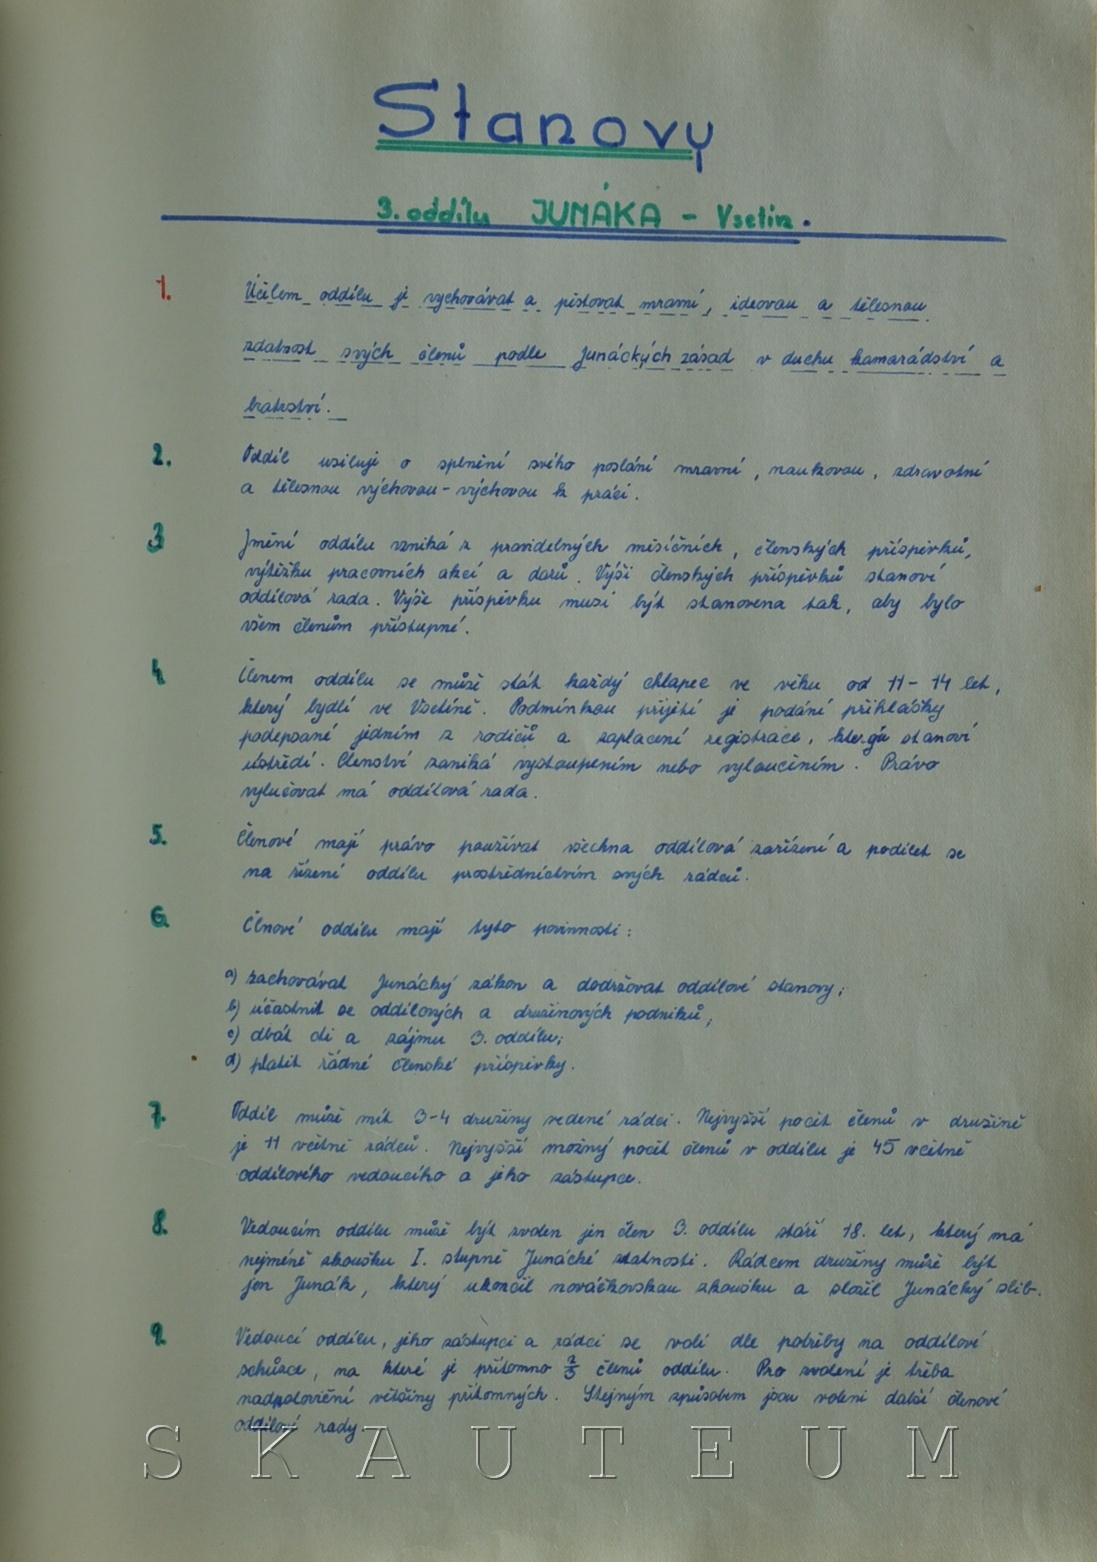 Stanovy
3. oddílu JUNÁKA - Vsetín.
1. Účelem oddílu je vychovávat a pěstovat mravní, ideovou a tělesnou
zdatnost svých členů podle Junáckých zásad v duchu kamarádství a
bratrství.
2. Oddíl usiluje o splnění svého poslání mravní, naukovou, zdravotní
a tělesnou výchovou - výchovou k práci.
3 Jmění oddílu vzniká z pravidelných měsíčních, členských příspěvků,
výtěžku pracovních akcí a darů. Výši členských příspěvků stanoví
oddílová rada. Výše příspěvku musí být stanovena tak, aby bylo
všem členům přístupné.
4. Členem oddílu se může stát každý chlapec ve věku od 11-14 let,
který bydlí ve Vsetíně. Podmínkou přijetí je podání přihlášky
podepsané jedním z rodičů a zaplacení registrace, kterou stanoví
ústředí. Členství zaniká vystoupením nebo vyloučením. Právo
vylučovat má oddílová rada.
5. Členové mají právo používat všechna oddílová zařízení a podílet se
na řízení oddílu prostřednictvím svých rádců.
6. Člnové oddílu mají tyto povinnosti:
a) zachovávat Junácký zákon a dodržovat oddílové stanovy;
b) účastnit se oddílových a družinových podniků;
c) dbát cti a zájmu 3. oddílu;
d) platit řádné členské příspěvky.
7. Oddíl může mít 3-4 družiny vedené rádci. Nejvyšší počet členů v družině
je 11 včetně rádců. Nejvyšší možný počet členů v oddílu je 45 včetně
oddílového vedoucího a jeho zástupce.
8. Vedoucím oddílu může být zvolen jen člen 3. oddílu stáří 18. let, který má
nejméně zkoušku I. stupně Junácké zdatnosti. Rádcem družiny může být
jen Junák, který ukončil nováčkovskou zkoušku a složil Junácký slib.
9. Vedoucí oddílu, jeho zástupci a rádci se volí dle potřeby na oddílové
schůzce, na které je přítomno 2/3 členů oddílu. Pro zvolení je třeba
nadpoloviční většiny přítomných. Stejným způsobem jsou voleni další členové
oddílové rady.
SKAUTEUM